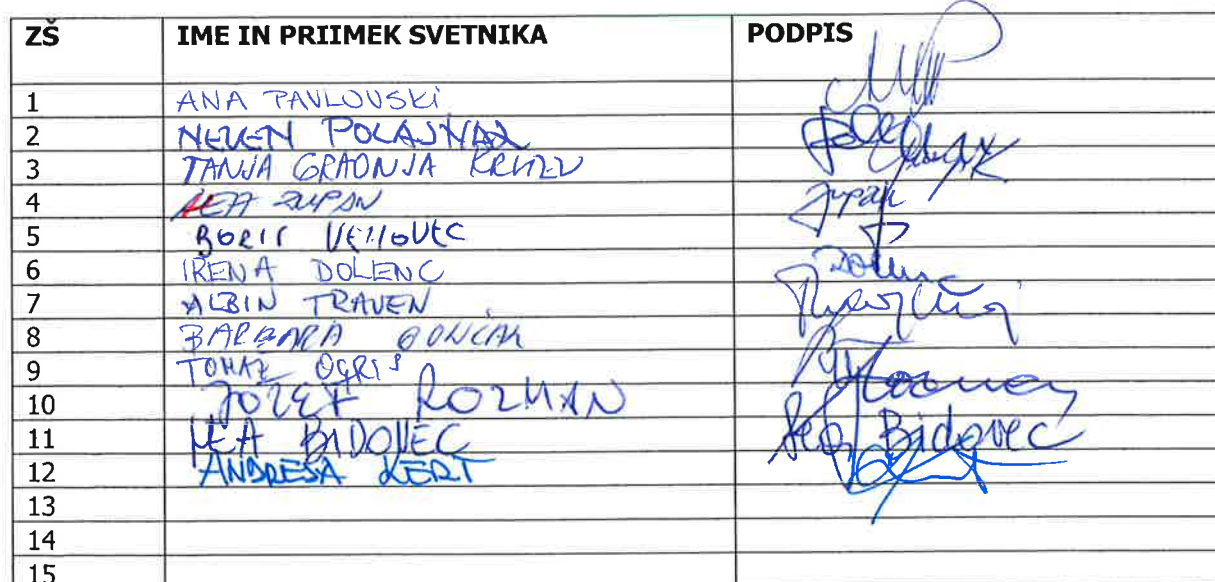 ZŠ IME IN PRIIMEK SVETNIKA PODPIS
1 ANA PAVLOVSKI
2 NEVEN POLAJNAR
3 TANJA GRADNJA
4 ZUPAN Zupan
5 BORIS
6 IRENA DOLENC Dolenc
7 ALBIN TRAVEN
8 BARBARA GONČAR
9 TOMAŽ OGRIS
10 JOŽEF ROZMAN
11 LEA BIDOVEC Lea Bidovec
12 ANDREJA KERT
13
14
15